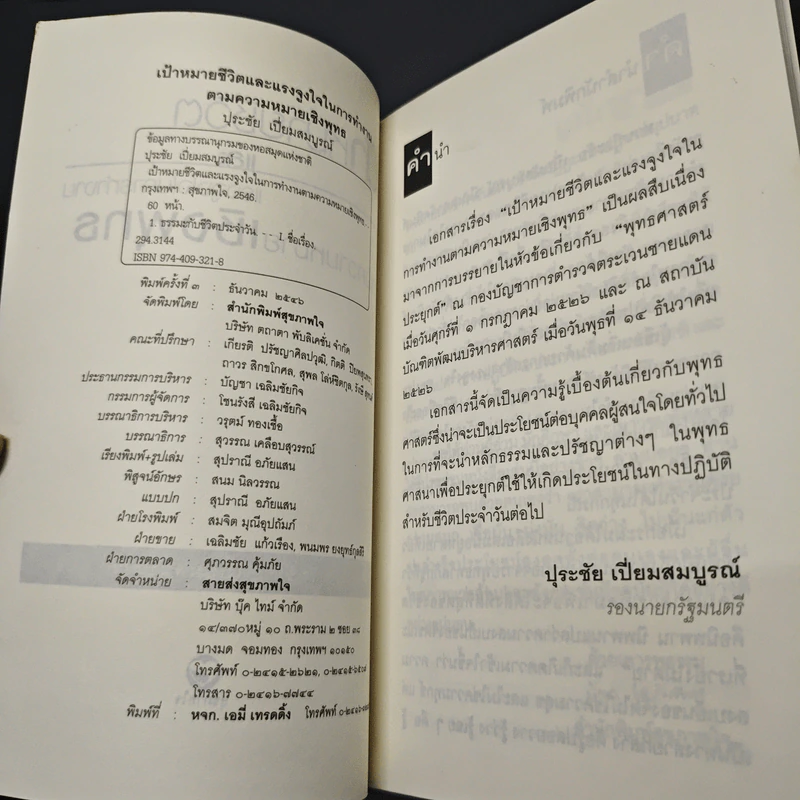 เป้าหมายชีวิตและแรงจูงใจในการทำงาน
ตามความหมายเชิงพุทธ
ปุระชัย เปี่ยมสมบูรณ์
ข้อมูลทางบรรณานุกรมของหอสมุดแห่งชาติ
ปุระชัย เปี่ยมสมบูรณ์
เป้าหมายชีวิตและแรงจูงใจในการทำงานตามความหมายเชิงพุทธ.--
กรุงเทพฯ : สุขภาพใจ, 2546.
60 หน้า.
1. ธรรมะกับชีวิตประจำวัน -- I. ชื่อเรื่อง.
294.3144
ISBN 974-409-321-8
พิมพ์ครั้งที่ ๓ : ธันวาคม ๒๕๔๖
จัดพิมพ์โดย : สำนักพิมพ์สุขภาพใจ
บริษัท ตถาตา พับลิเคชั่น จำกัด
คณะที่ปรึกษา : เกียรติ ปรัชญาศิลปวุฒิ, กิตติ
ถาวร สิกขโกศล, สุพล
ประธานกรรมการบริหาร : บัญชา เฉลิมชัยกิจ
กรรมการผู้จัดการ : โชนรังสี เฉลิมชัยกิจ
บรรณาธิการบริหาร : วรุตม์ ทองเชื้อ
บรรณาธิการ : สุวรรณ เคลือบสุวรรณ์
เรียงพิมพ์+รูปเล่ม : สุปราณี อภัยแสน
พิสูจน์อักษร : สนม นิลวรรณ
แบบปก : สุปราณี อภัยแสน
ฝ่ายโรงพิมพ์ : สมจิต มุณีอุปถัมภ์
ฝ่ายขาย : เฉลิมชัย แก้วเรือง, พนมพร ยงยุทธ์กุลศิริ
ฝ่ายการตลาด : ศุภวรรณ คุ้มภัย
จัดจำหน่าย : สายส่งสุขภาพใจ
บริษัท บุ๊ค ไทม์ จำกัด
๑๔/๓๗๐ หมู่ ๑๐ ถ.พระราม ๒ ซอย ๓๘
บางมด จอมทอง กรุงเทพฯ ๑๐๑๕๐
โทรศัพท์ ๐-๒๔๑๕-๒๖๒๑, ๐-๒๔๑๕-๖๕๐๗
โทรสาร ๐-๒๔๑๖-๗๗๔๔
พิมพ์ที่ : หจก. เอมี่ เทรดดิ้ง โทรศัพท์
คำนำ
เอกสารเรื่อง “เป้าหมายชีวิตและแรงจูงใจใน
การทำงานตามความหมายเชิงพุทธ” เป็นผลสืบเนื่อง
มาจากการบรรยายในหัวข้อเกี่ยวกับ “พุทธศาสตร์
ประยุกต์” ณ กองบัญชาการตำรวจตระเวนชายแดน
เมื่อวันศุกร์ที่ ๑ กรกฎาคม ๒๕๒๖ และ ณ สถาบัน
บัณฑิตพัฒนบริหารศาสตร์ เมื่อวันพุธที่ ๑๔ ธันวาคม
๒๕๒๖
เอกสารนี้จัดเป็นความรู้เบื้องต้นเกี่ยวกับพุทธ
ศาสตร์ซึ่งน่าจะเป็นประโยชน์ต่อบุคคลผู้สนใจโดยทั่วไป
ในการที่จะนำหลักธรรมและปรัชญาต่างๆ ในพุทธ
ศาสนาเพื่อประยุกต์ใช้ให้เกิดประโยชน์ในทางปฏิบัติ
สำหรับชีวิตประจำวันต่อไป
ปุระชัย เปี่ยมสมบูรณ์
รองนายกรัฐมนตรี